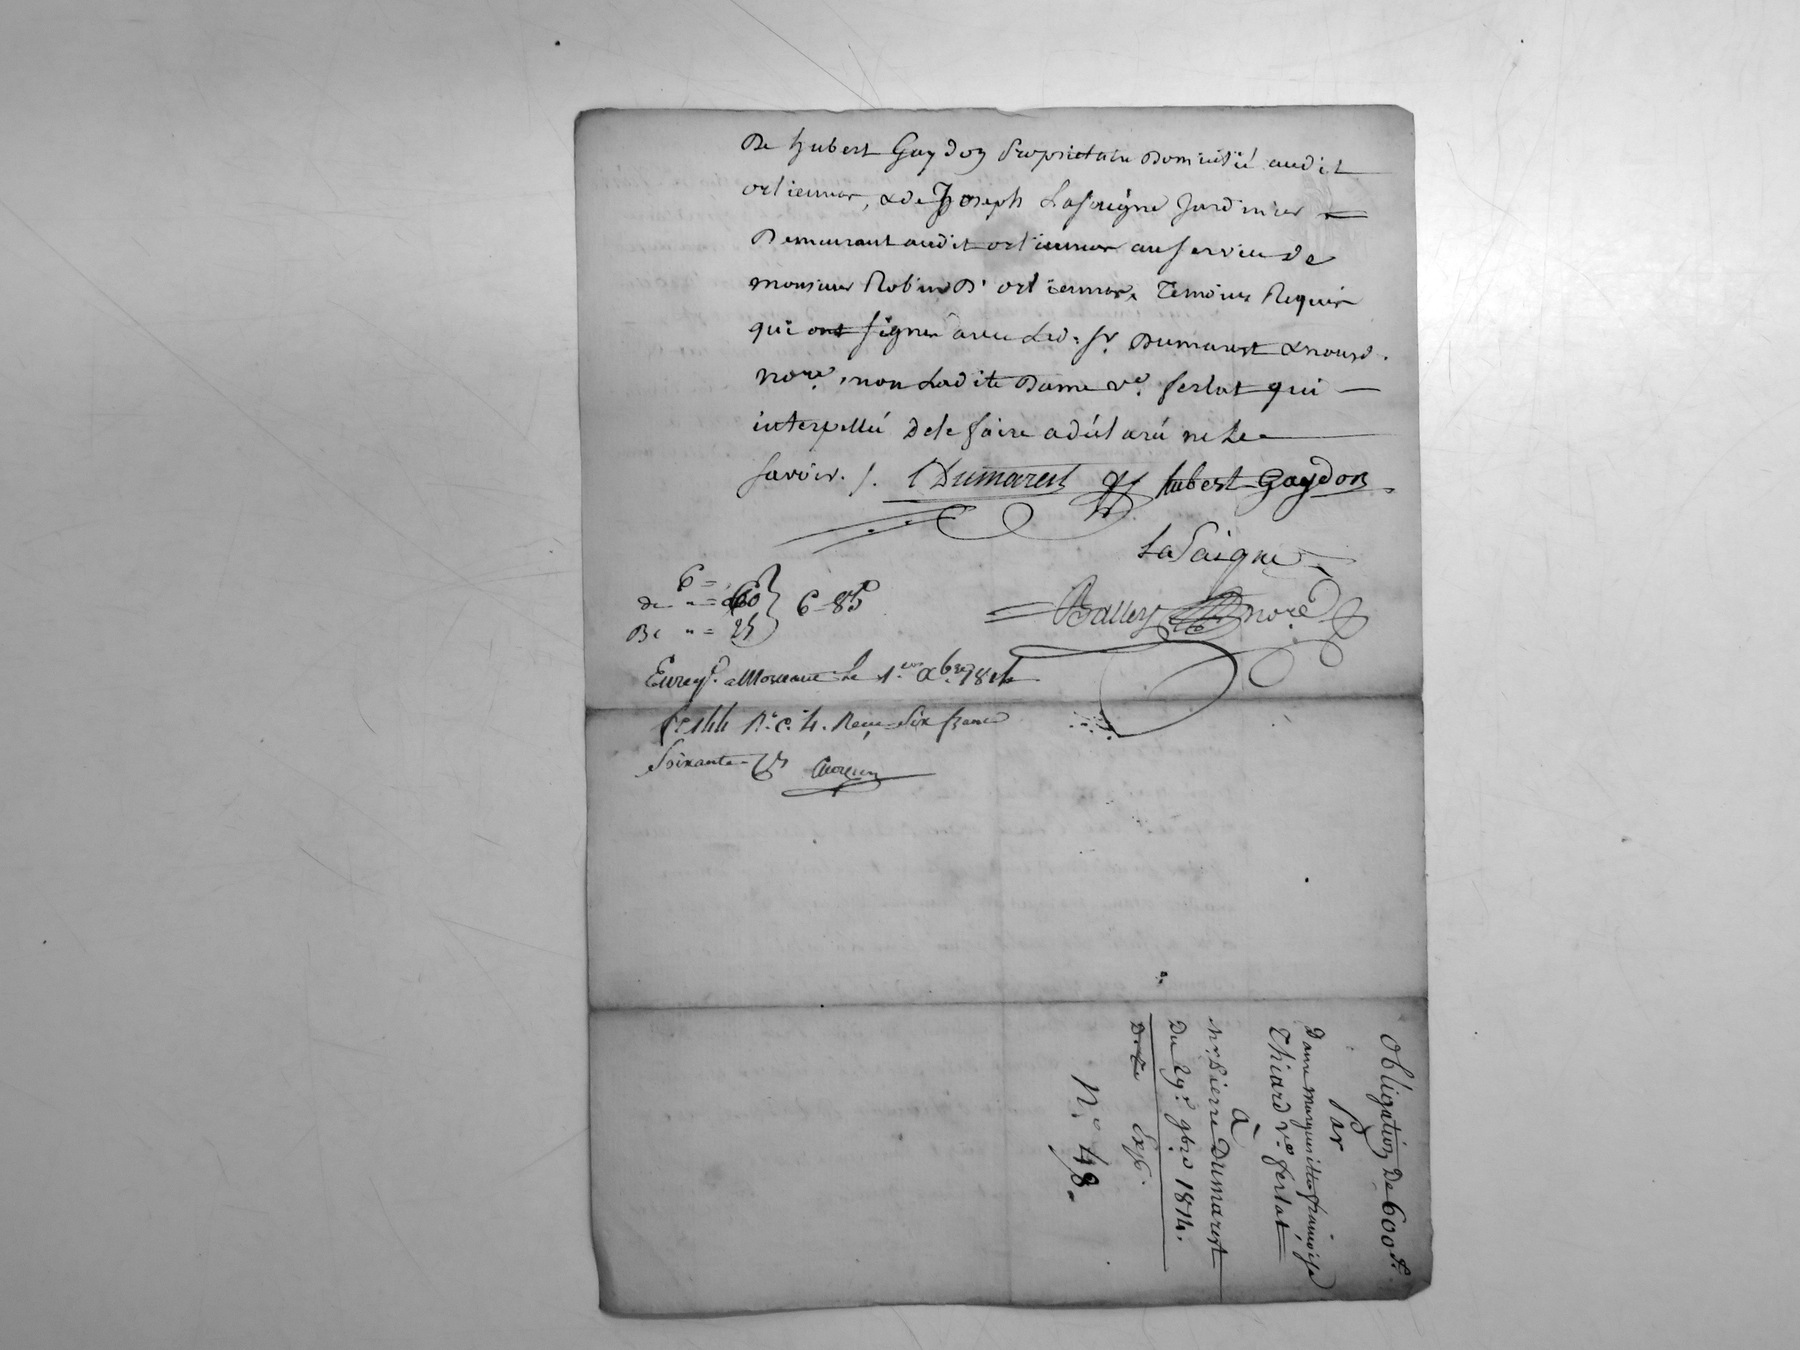 De hubert Gaydon proprietaire Domicilié audit
orliennas, & de Joseph Lasaigne Jardinier
Demeurant audit orliennas au service de
monsieur Robin D'orliennas, Temoins Requis
qui ont signés avec Led. Sr. Dumarest & nousd.
nore. non Ladite Dame ve. ferlat qui
interpellée de le faire a déclaré ne Le
savoir. /. Dumarest hubert Gaydon
LaSaigne
Balley nore
6 =
de " = 60
" = 25
6-85
Enregt. a Mornant Le 1er. Xbre 1814
fo 144 Ro. c. 4. Reçu Six franc
Soixante
Obligation De 600 f.
par
Dame margueritte françoise
Thiard ve. ferlat
à
Mr. pierre Dumarest
Du 29e. 9bre 1814.
Exp.
N.o 48.